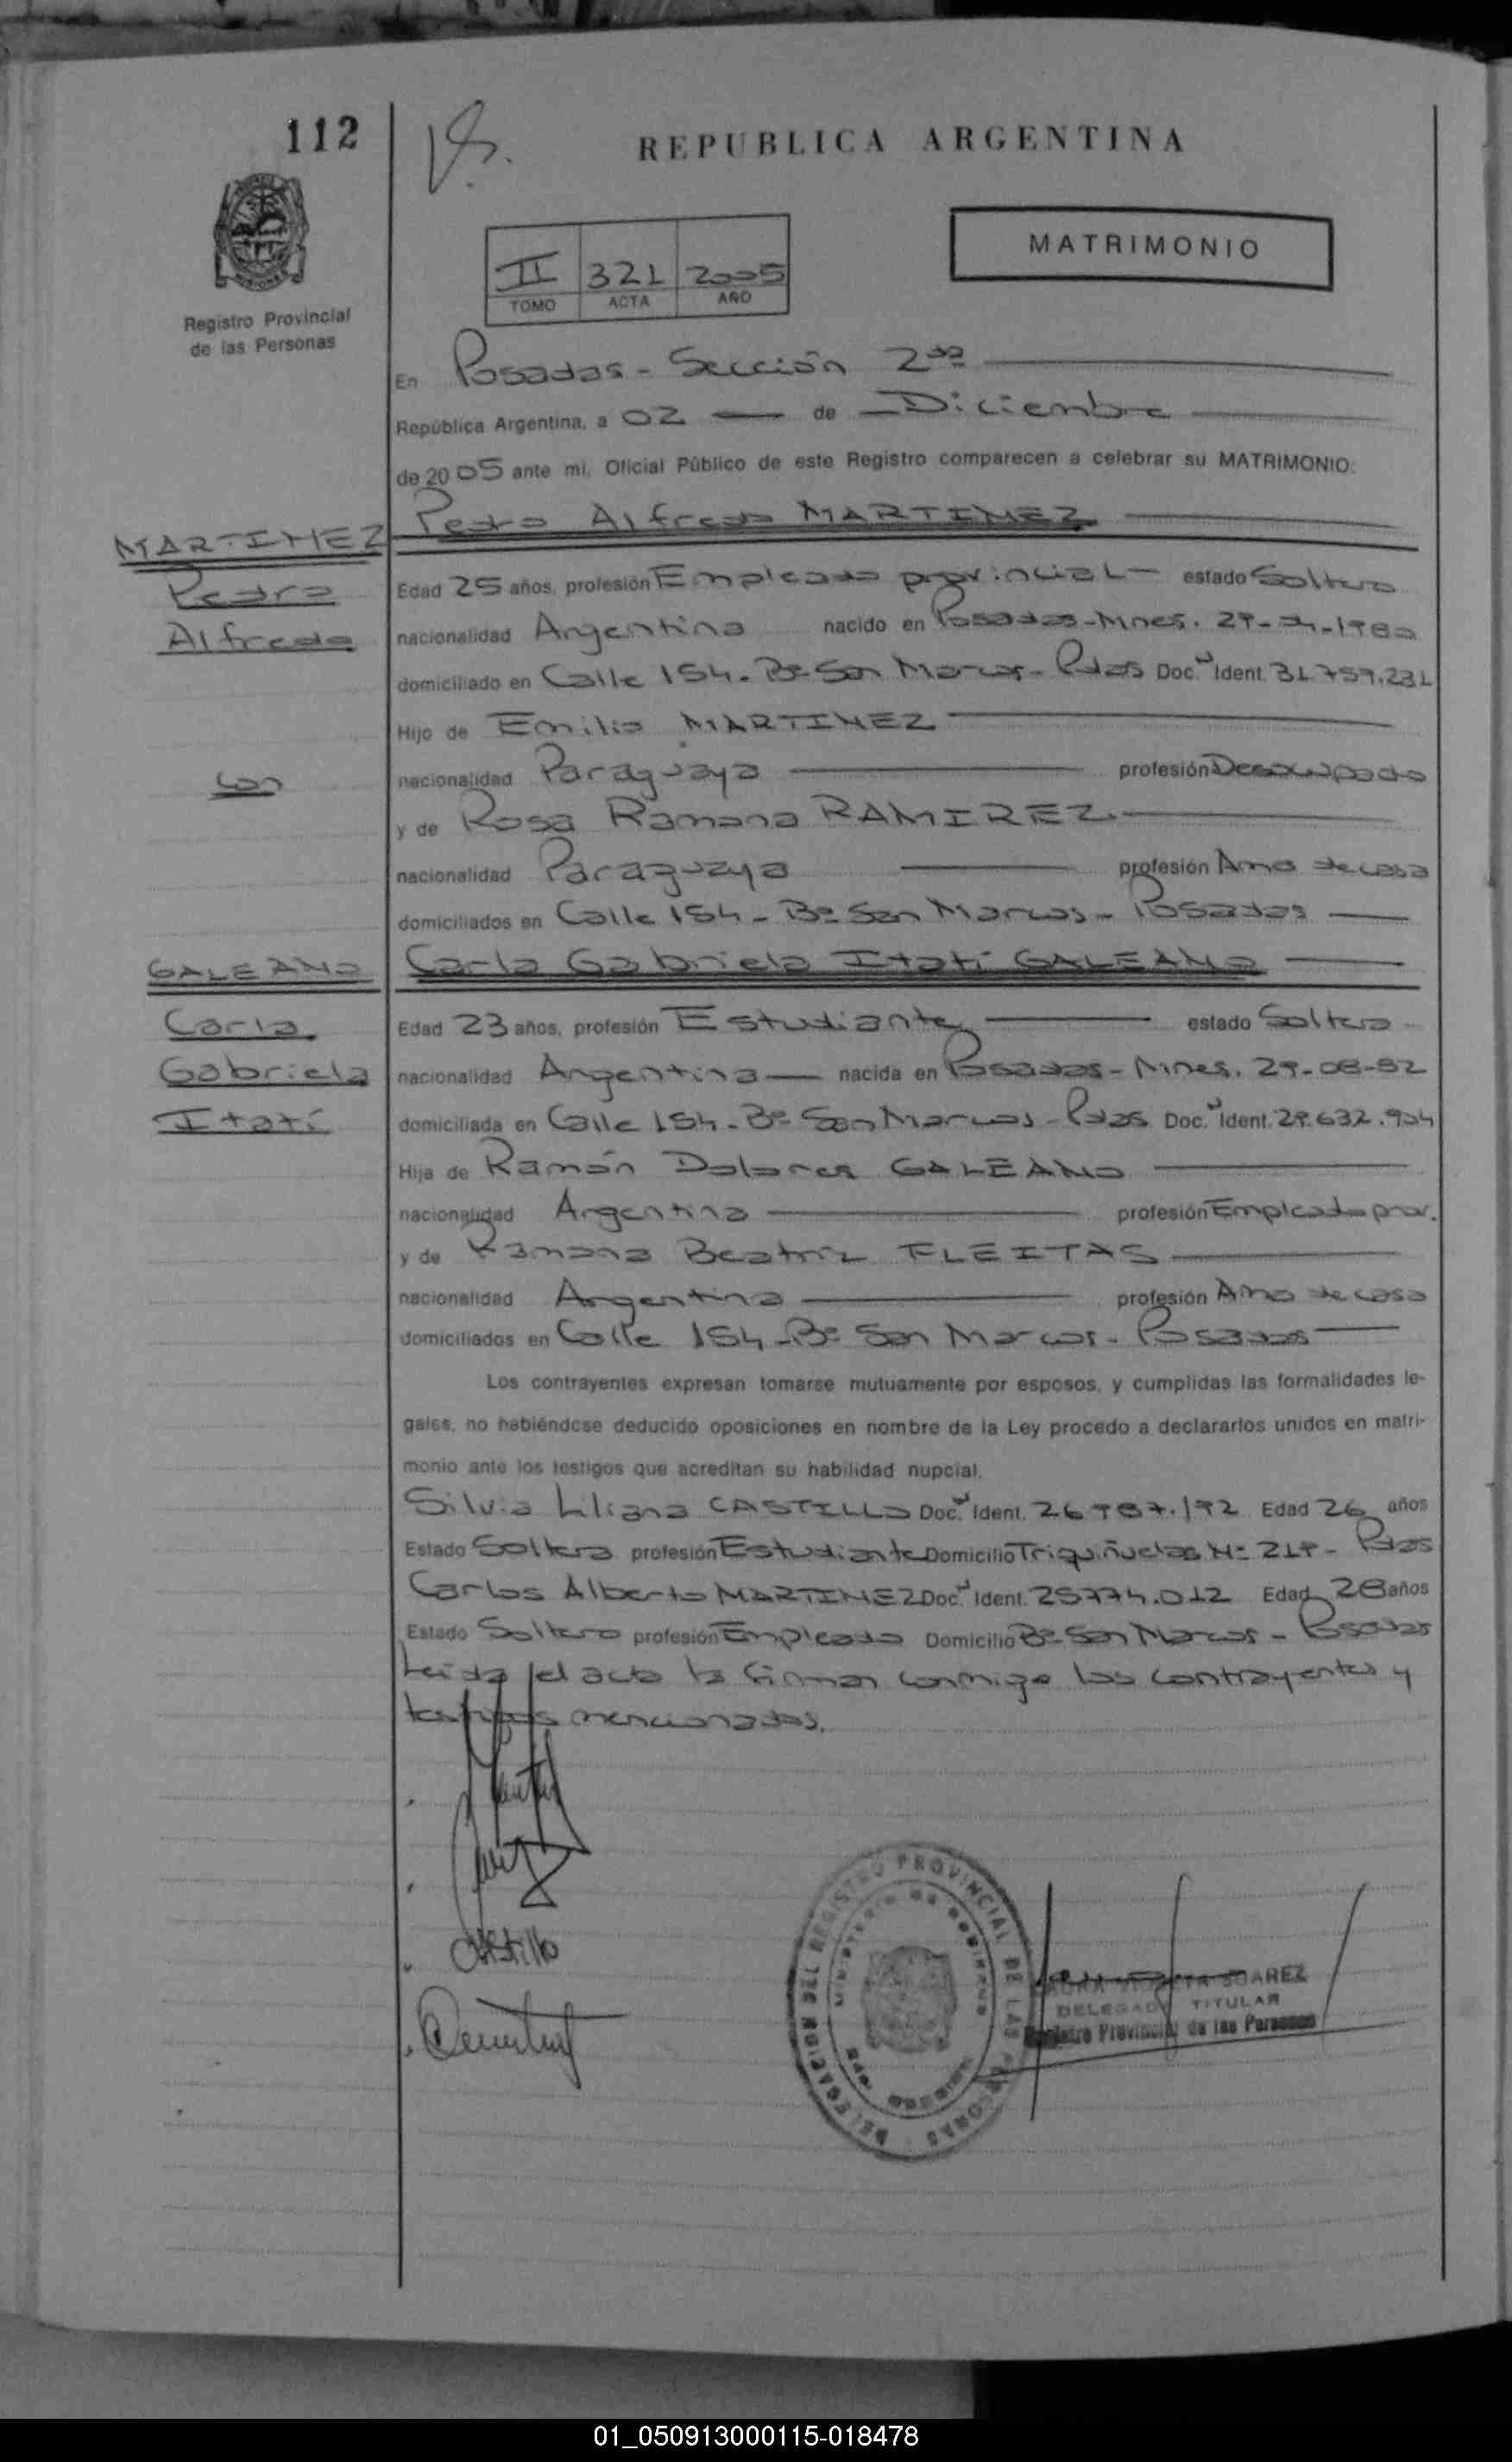 112
REPUBLICA ARGENTINA
MATRIMONIO
II 321 2005
TOMO ACTA AÑO
Registro Provincial
de las Personas
En Posadas - Sección 2da
República Argentina, a 02 de Diciembre
de 2005 ante mi, Oficial Público de este Registro comparecen a celebrar su MATRIMONIO:
MARTINEZ Pedro Alfredo MARTINEZ
Pedro Edad 25 años, profesión Empleado provincial estado Soltero
Alfredo nacionalidad Argentina nacido en Posadas - Mnes.
domiciliado en Calle 154 - Bº San Marcos - Pdas Doc. Ident. 31.759.231
Hijo de Emilio MARTINEZ
con nacionalidad Paraguaya profesión Desocupado
y de Rosa Ramona RAMIREZ
nacionalidad Paraguaya profesión Ama de casa
domiciliados en Calle 154 - Bº San Marcos - Posadas
GALEANO Carla Gabriela Itatí GALEANO
Carla Edad 23 años, profesión Estudiante estado Soltera
Gabriela nacionalidad Argentina nacida en Posadas - Mnes. 29-08-82
Itatí domiciliada en Calle 154 - Bº San Marcos - Pdas Doc. Ident. 29.632.904
Hija de Ramón Dolores GALEANO
nacionalidad Argentina profesión Empleado prov.
y de Ramona Beatriz FLEITAS
nacionalidad Argentina profesión Ama de casa
domiciliados en Calle 154 - Bº San Marcos - Posadas
Los contrayentes expresan tomarse mutuamente por esposos, y cumplidas las formalidades le-
gales, no habiéndose deducido oposiciones en nombre de la Ley procedo a declararlos unidos en matri-
monio ante los testigos que acreditan su habilidad nupcial.
Silvia Liliana CASTILLO Doc. Ident. Edad 26 años
Estado Soltera profesión Estudiante Domicilio Triquiñuelas Nº 219 - Pdas
Carlos Alberto MARTINEZ Doc. Ident. 25774.012 Edad 28 años
Estado Soltero profesión Empleado Domicilio Bº San Marcos - Posadas
Leída el acta la firman conmigo los contrayentes y
testigos mencionados.
Castillo
DELEGACION DEL REGISTRO PROVINCIAL DE LAS PERSONAS
MINISTERIO DE GOBIERNO
SUAREZ
DELEGADA TITULAR
Registro Provincial de las Personas
01_050913000115-018478